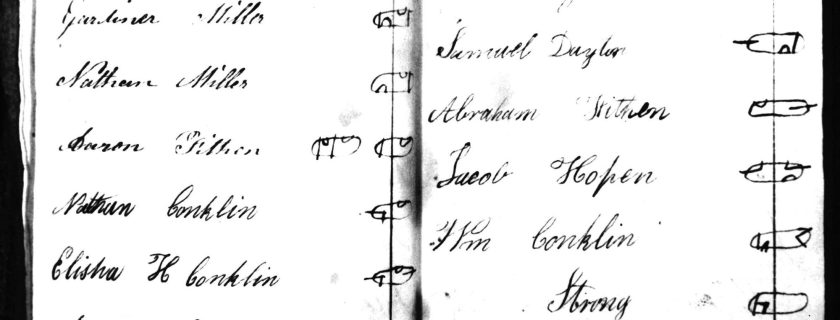 Gardiner Miller
Nathan Miller
Aaron Fithen
Nathan Conklin
Elisha H Conklin
Samuel Dayton
Abraham Fithen
Jacob Hopen
Wm Conklin
Strong